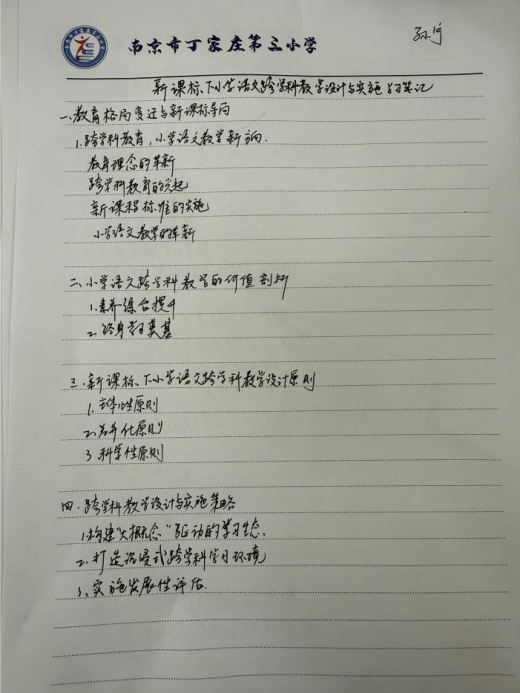 南京市丁家庄第三小学
新课标下小学语文跨学科教学设计与实施 学习笔记
一、教育格局变迁与新课标导向
1.跨学科教育,小学语文教学新方向.
教育理念的革新
跨学科教育的兴起
新课程标准的实施
小学语文教学的革新
二、小学语文跨学科教学的价值剖析
1.素养综合提升
2.终身学习奠基
三.新课标、下小学语文跨学科教学设计原则
1.主体性原则
2.差异化原则
3.科学性原则
四.跨学科教学设计与实施策略
1.构建"大概念"驱动的学习生态.
2.打造沉浸式跨学科学习环境
3、实施发展性评估.